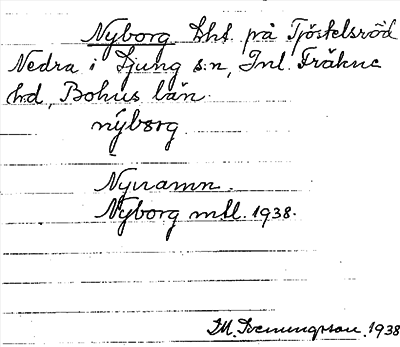 Nyborg lht. på Tjöstelsröd
Nedra i Ljung s:n, Inl. Fräkne
hd, Bohus län.
nýbȯrg
Nynamn.
Nyborg mtl. 1938.
M. Svenungsson. 1938